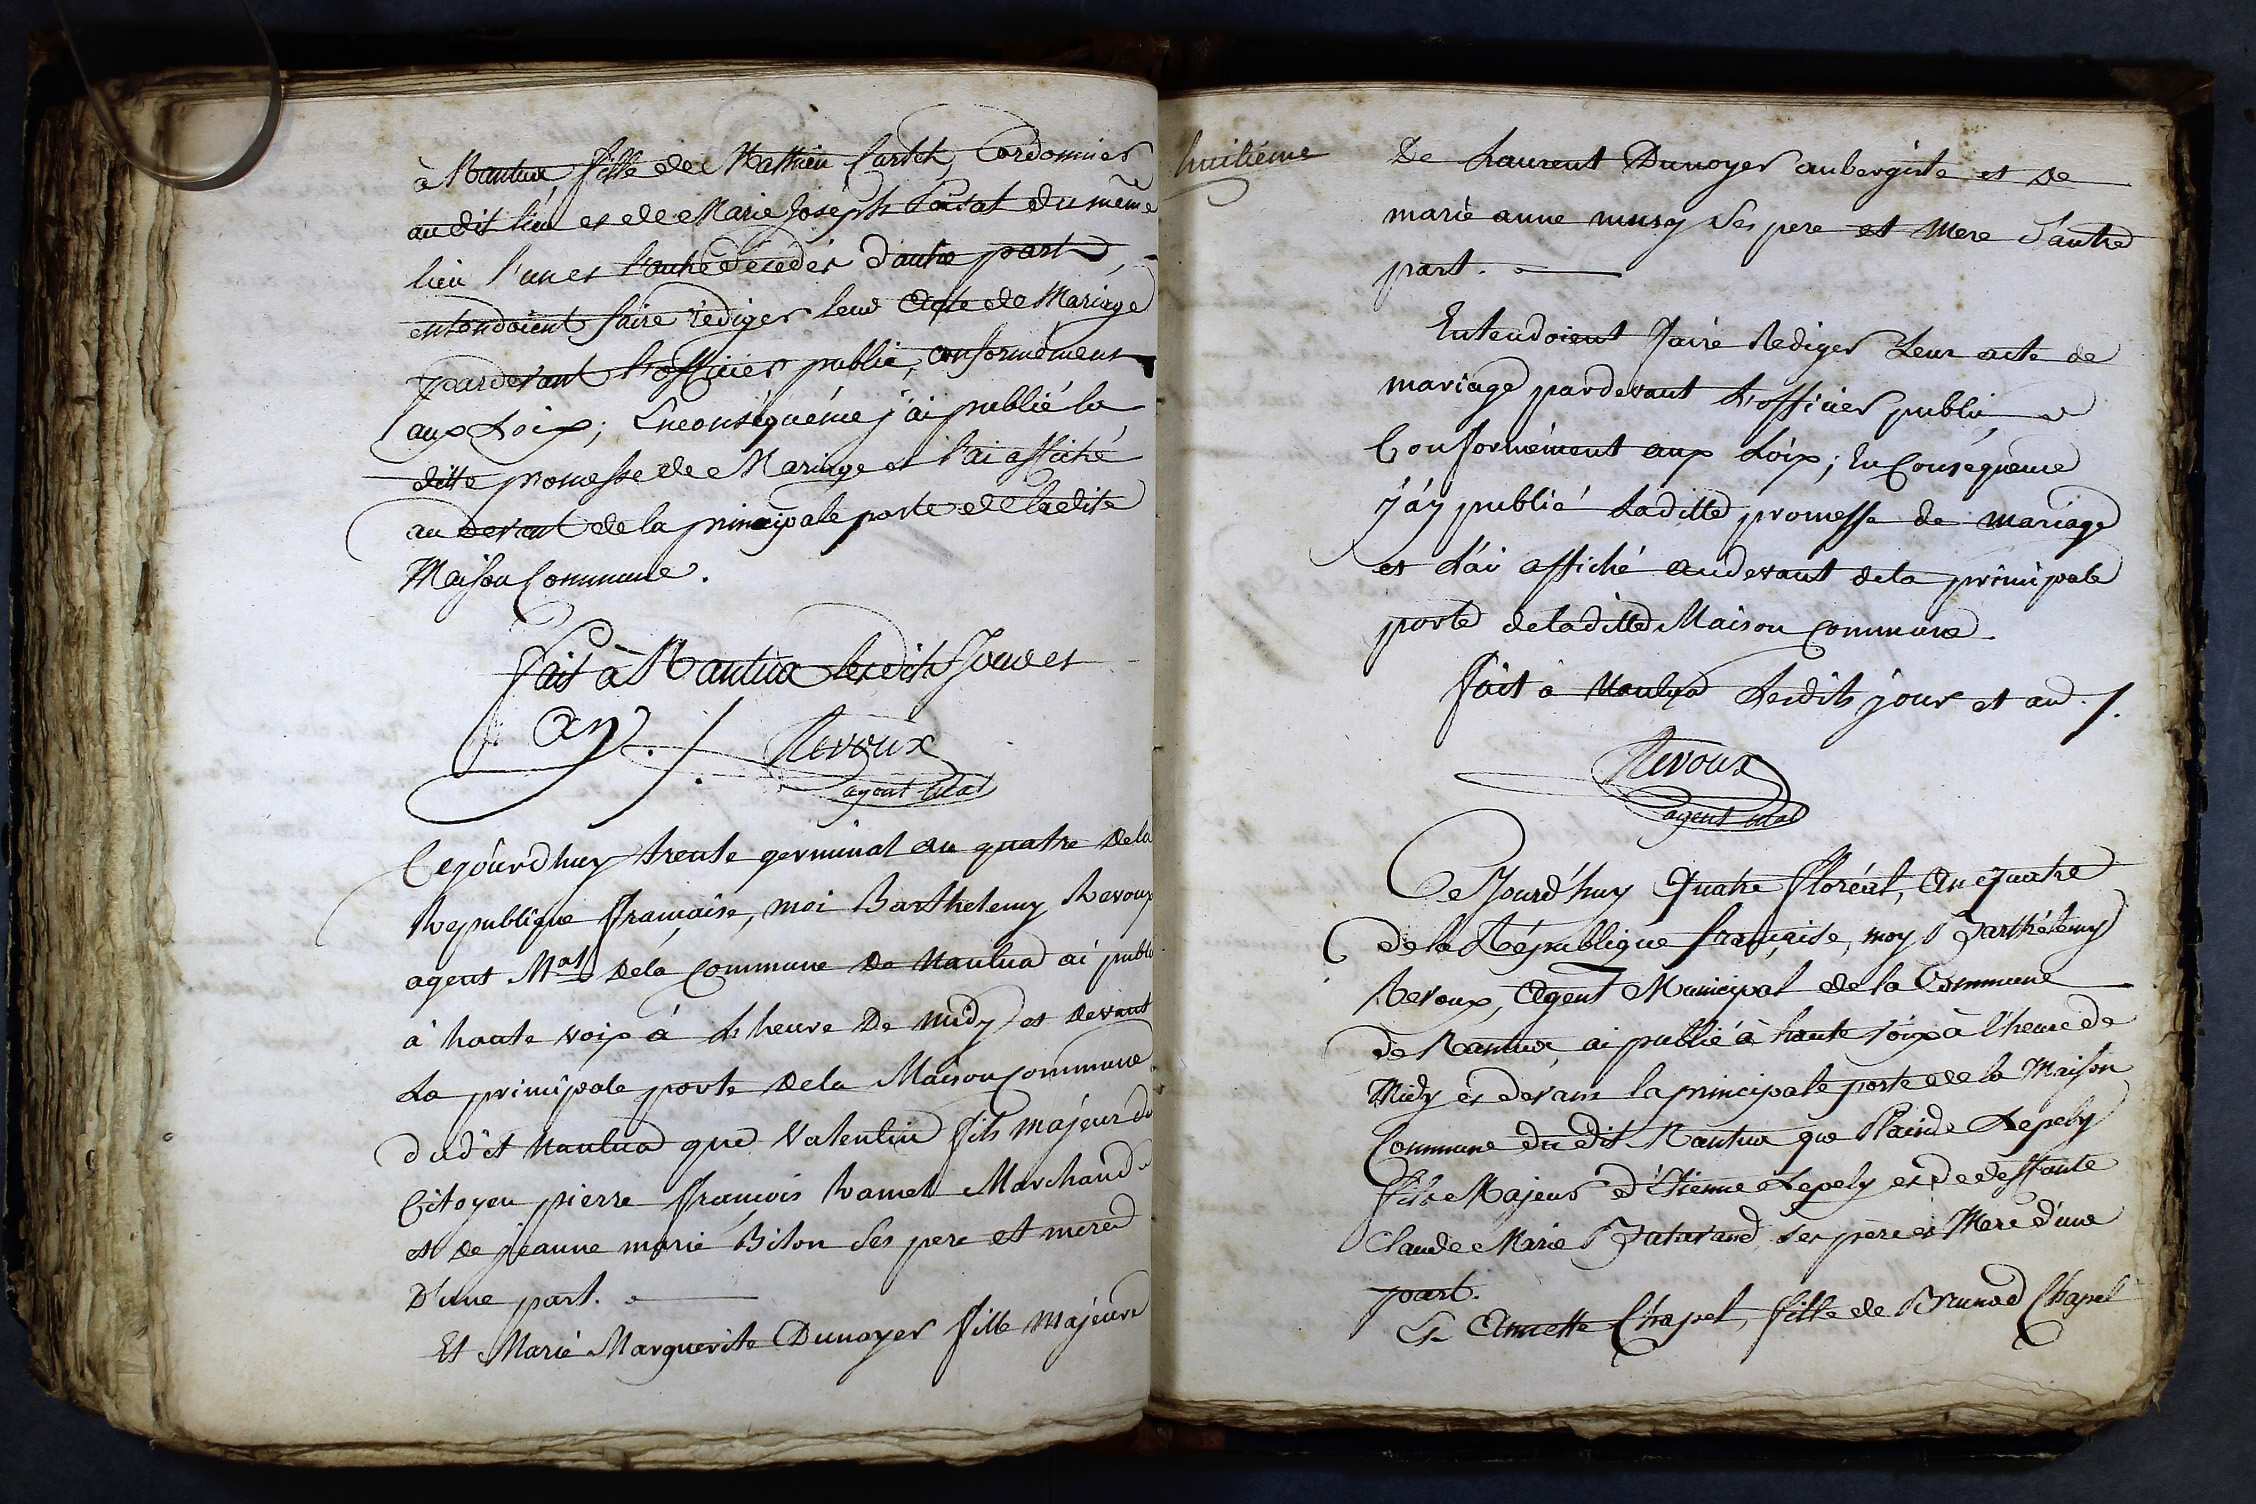 à Nantua, fille de Mathieu Cartet, Cordonnier
audit lieu et de Marie Joseph Loisat du même
lieu l'un et l'autre décédés d'autre part,
entendoient faire rédiger leur Acte de Mariage
pardevant l'officier public, conformément
aux Loix; Enconséquence j'ai publié la
ditte promesse de Mariage et l'ai affiché
au devant de la principale porte de ladite
Maison Commune.
fait à Nantua lesdits Jour et
an. /.
Revoux
agent mal
Cejourdhuy trente germinal an quatre de la
Republique française, moi Barthelemy Revoux
agent Mal dela Commune de Nantua ai publié
à haute voix à L'heure de midy et devant
La principale porte dela Maison commune
dudit Nantua que Valentin fils majeur du
Citoyen pierre françois hamel Marchand
et de jeanne marie Biton Ses pere et mere
D'une part.
Et Marie Marguerite Dunoyer fille majeure
huitième
De Laurent Dunoyer aubergiste et de
marie anne musy Ses pere et Mere d'autre
part.
Entendoient faire Rediger Leur acte de
mariage pardevant L'officier public
Conformément aux Loix; En Conséquence
j'ay publié Laditte promesse de mariage
et L'ai affiché audevant dela principale
porte deladitte Maison Commune.
fait à Nantua Lesdits jour et an. /.
Revoux
agent mal
CeJourd'huy Quatre floréal, An quatre
de la République française, moy Barthélemy
Revoux, Agent Municipal de la Commune
de Nantua, ai publié à haute voix à l'heure de
Midy et devant la principale porte de la Maison
Commune dudit Nantua que Plainde Lepely
fils Majeur d'Etienne Lepely et de deffunte
Claude Marie Batarand, ses père et Mere d'une
part.
Et Annette Chapel, fille de Brunod Chapel